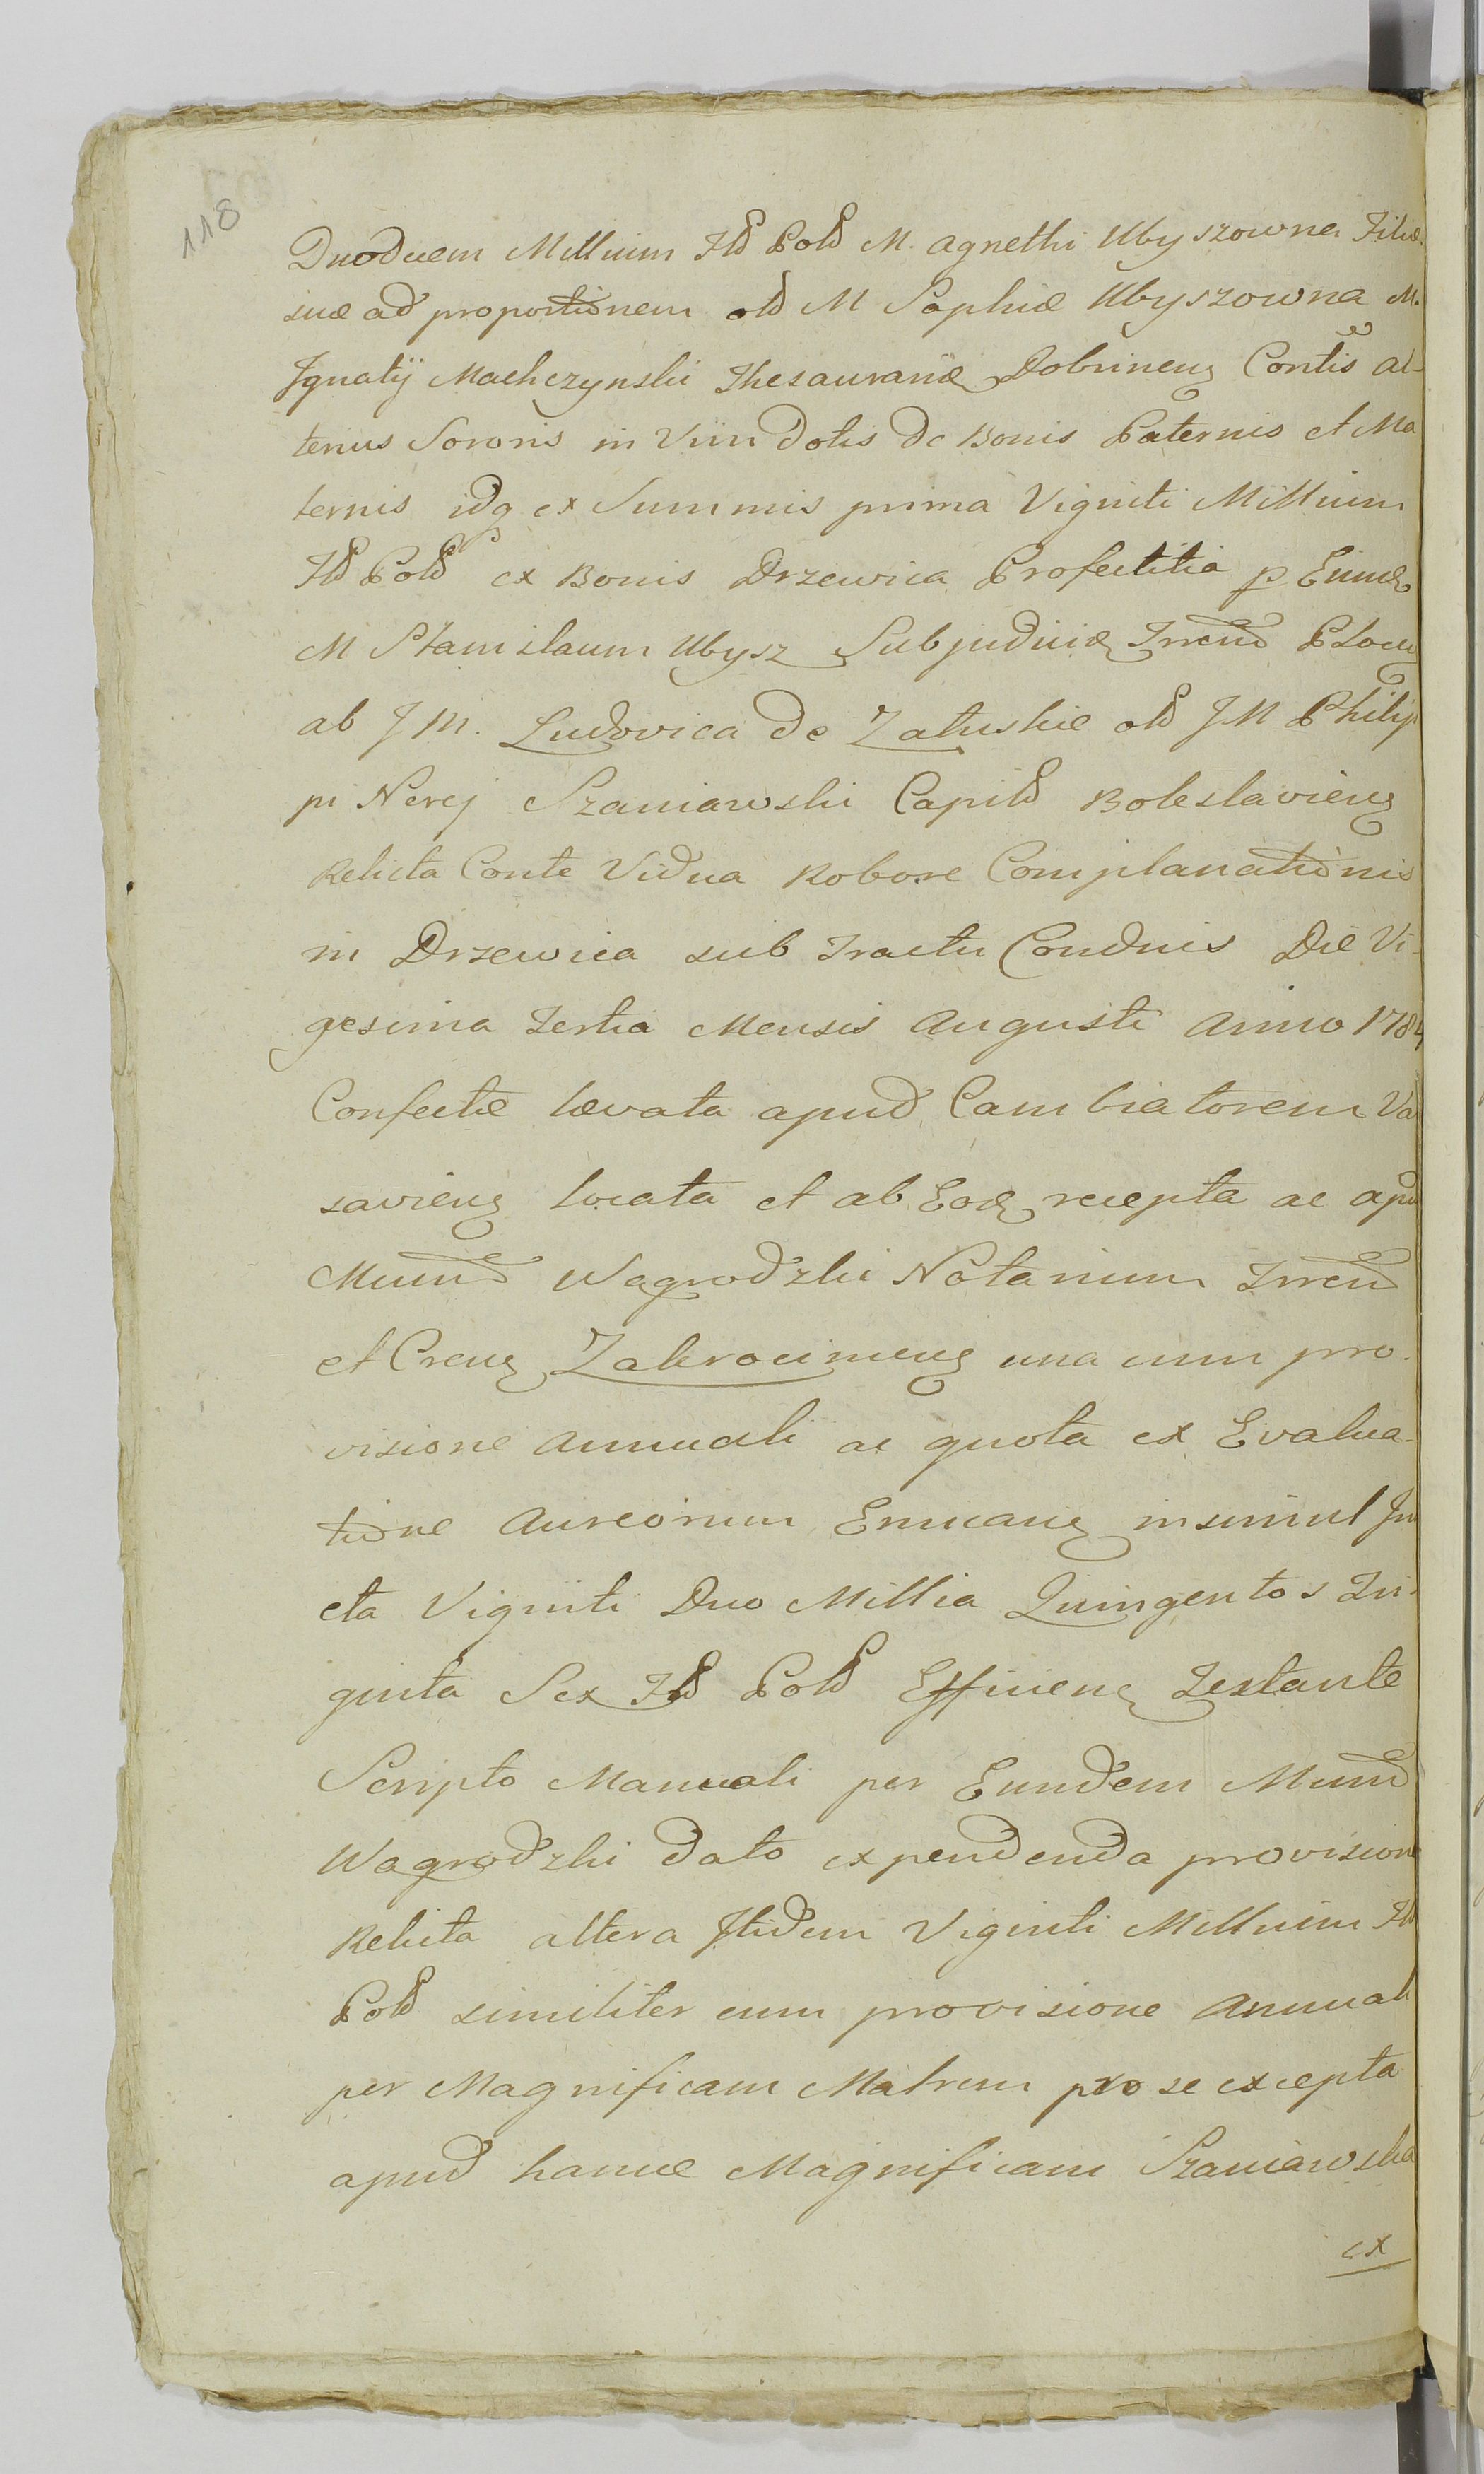 118
Duoduem Millium Fld Pold M. Agnethi Ubyszowne Filiæ
suæ ad proportionem old M Sophiæ Ubyszowna M.
Ignatij Machczynski Thesaurariæ Dobrinens Contis al-
terius Sororis in Vim dotis de Bonis Paternis et Ma
ternis idq ex Summis prima Viginti Millium
Fld Pold ex Bonis Drzewica Profectitia p Eund
M Stanislaum Ubysz Subjudicie Trrend Plocens
ab J M. Ludovica de Załuskie old J M Philip
pi Nerej Szaniawski Capild Boleslaviens
Relicta Conte Vidua Robore Complanationis
in Drzewica sub Tractu Condnis Die Vi-
gesima Tertia Mensis Augusti Anno 1784
Confectæ levata apud Cambiatorem Va
saviens locata et ab Eod recepta ac apu
Mund Wagrodzki Notarium Trrend
et Crens Zakrocimens una cum pro-
visione Annuali ac quota ex Evalua-
tione Aureorum Enucans insimul Jun
cta Viginti Duo Millia Quingentos Tri-
ginta Sex Fld Pold Efficiens Testante
Scripto Manuali per Eundem Mund
Wagrodzki dato expendenda provisione
Relicta altera Itidem Viginti Millium Fld
Pold similiter cum provisione Annuali
per Magnificam Matrem pro se excepta
apud hance Magnificam Szaniawska
ex